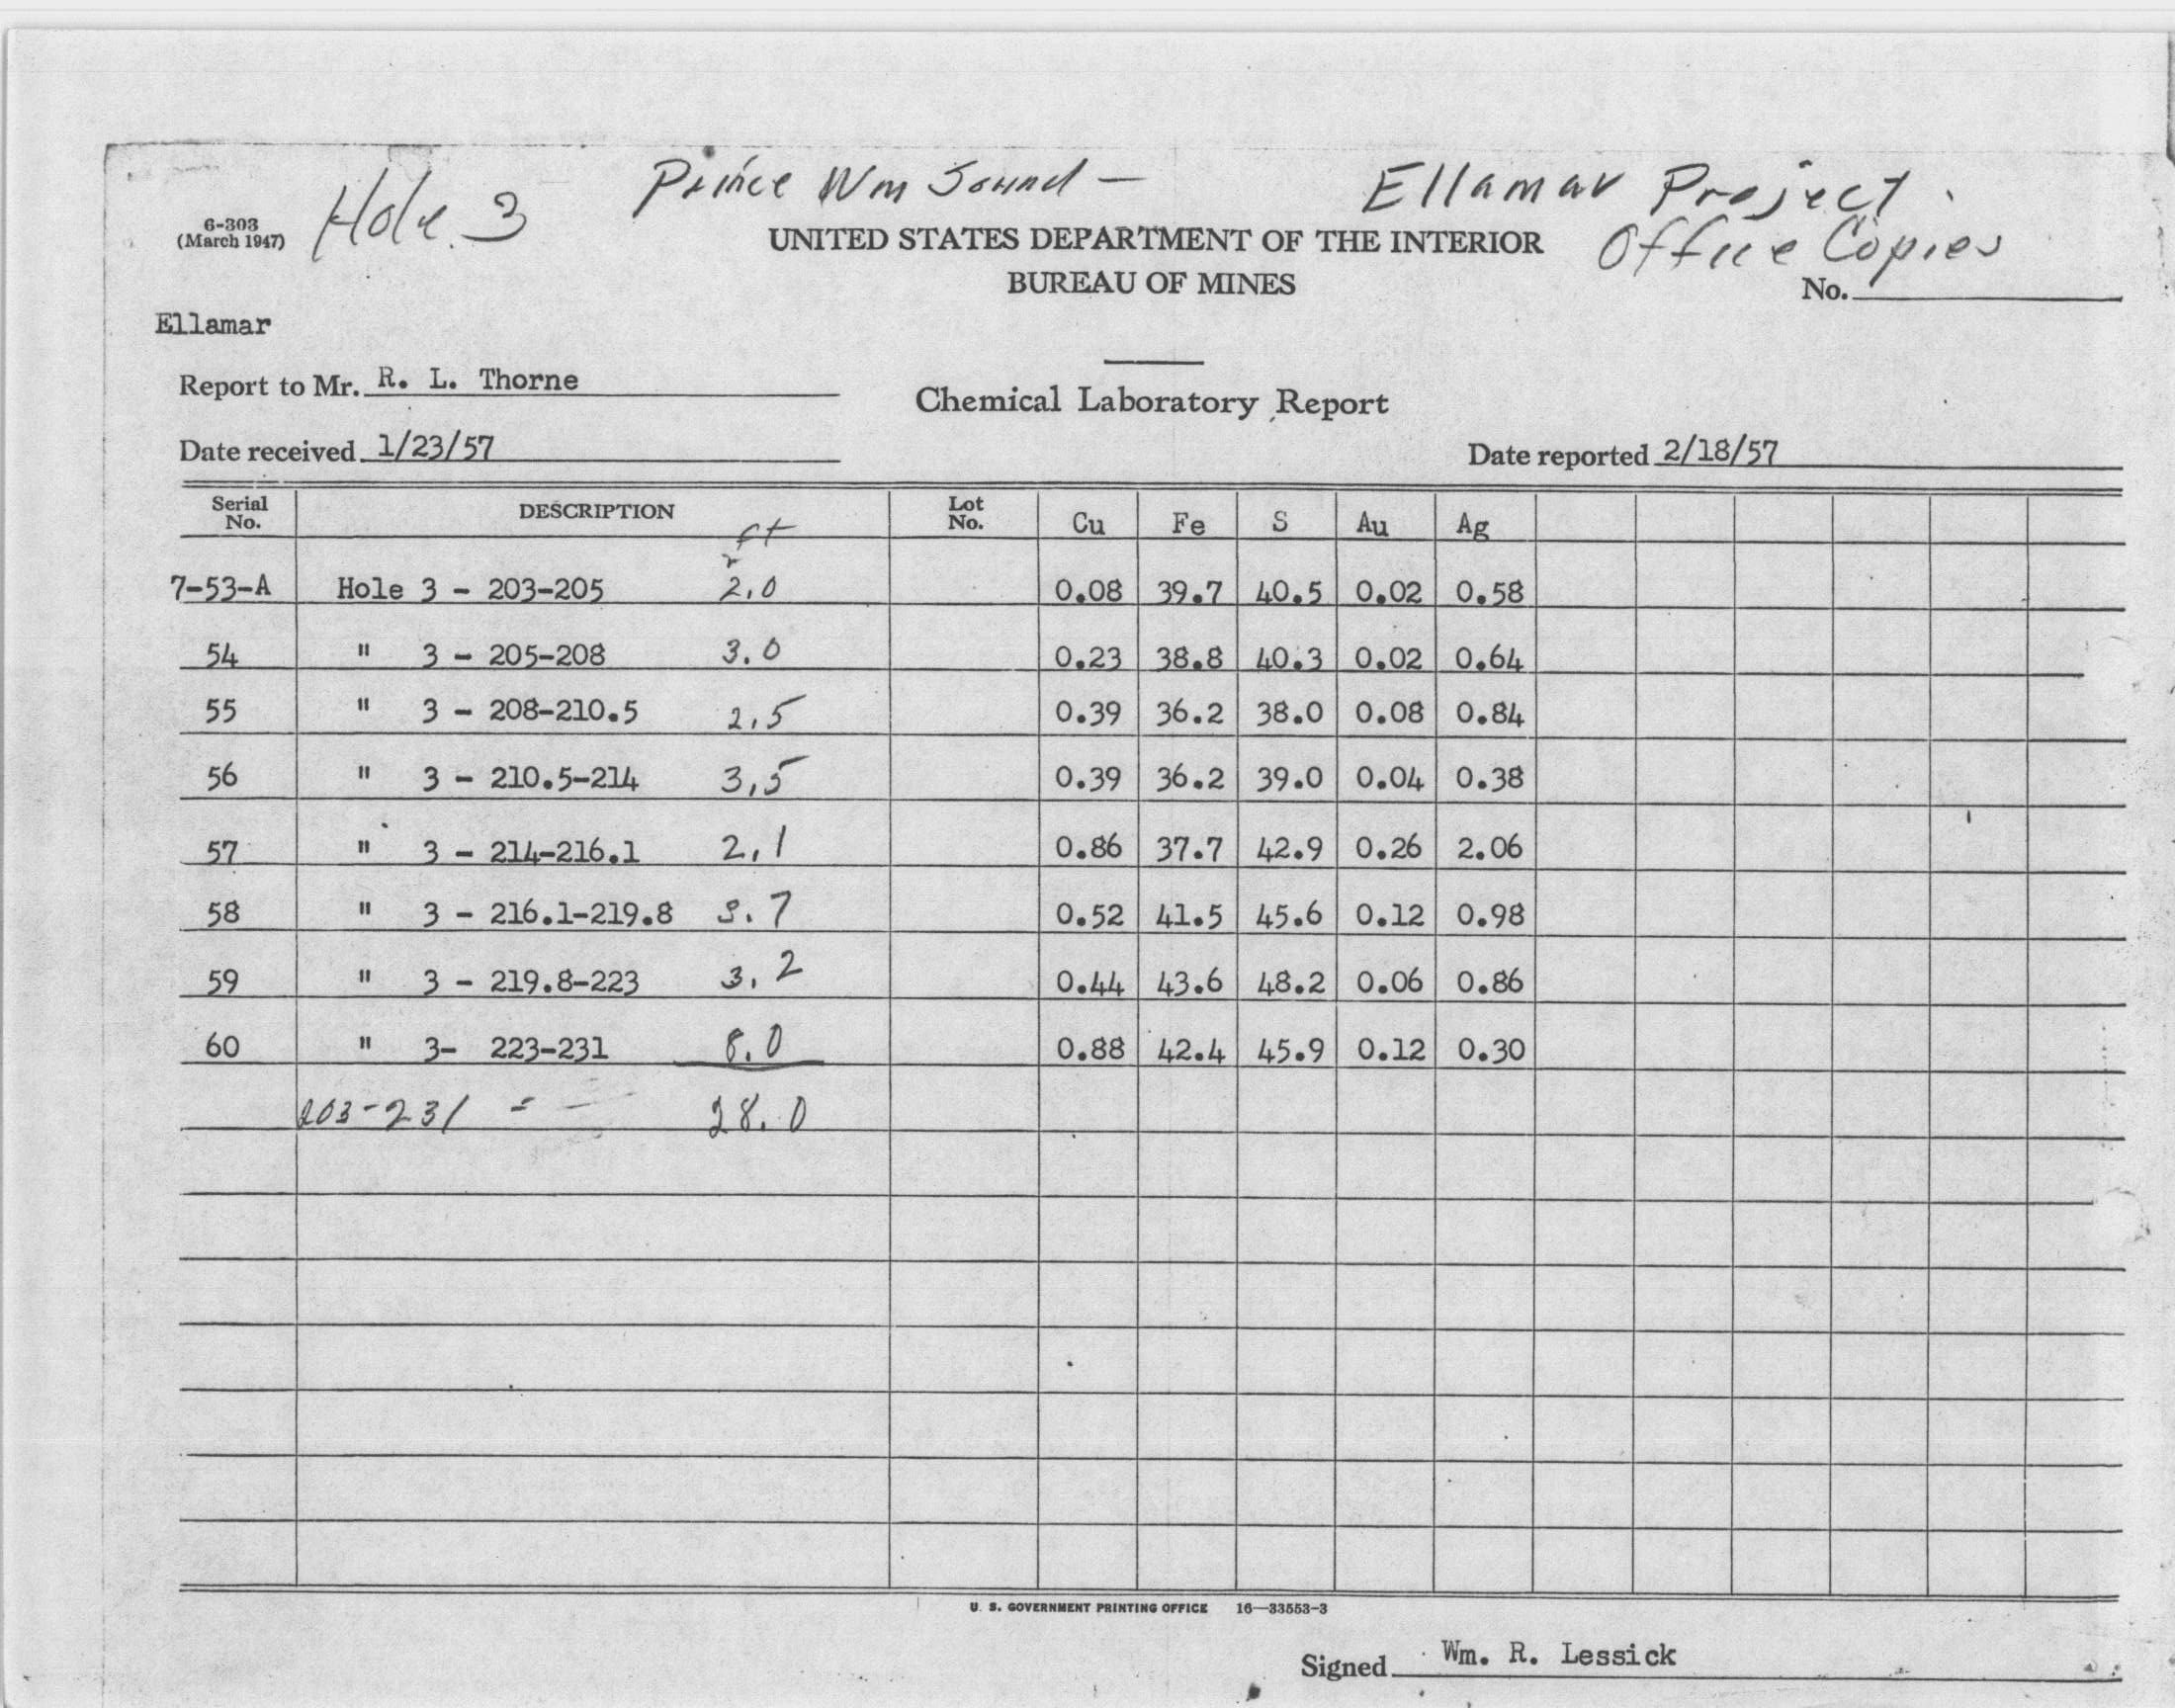 Prince Wm Sound - Ellamar Project.
6-303 Hole 3
(March 1947)
UNITED STATES DEPARTMENT OF THE INTERIOR Office Copies
BUREAU OF MINES No.
Ellamar
Report to Mr. R. L. Thorne
Chemical Laboratory Report
Date received 1/23/57 Date reported 2/18/57
Serial No. DESCRIPTION ft Lot No. Cu Fe S Au Ag
7-53-A Hole 3 - 203-205 2.0 0.08 39.7 40.5 0.02 0.58
54 " 3 - 205-208 3.0 0.23 38.8 40.3 0.02 0.64
55 " 3 - 208-210.5 2.5 0.39 36.2 38.0 0.08 0.84
56 " 3 - 210.5-214 3.5 0.39 36.2 39.0 0.04 0.38
57 " 3 - 214-216.1 2.1 0.86 37.7 42.9 0.26 2.06
58 " 3 - 216.1-219.8 3.7 0.52 41.5 45.6 0.12 0.98
59 " 3 - 219.8-223 3.2 0.44 43.6 48.2 0.06 0.86
60 " 3- 223-231 8.0 0.88 42.4 45.9 0.12 0.30
203-231 = - 28.0
U. S. GOVERNMENT PRINTING OFFICE 16—33553-3
Signed Wm. R. Lessick